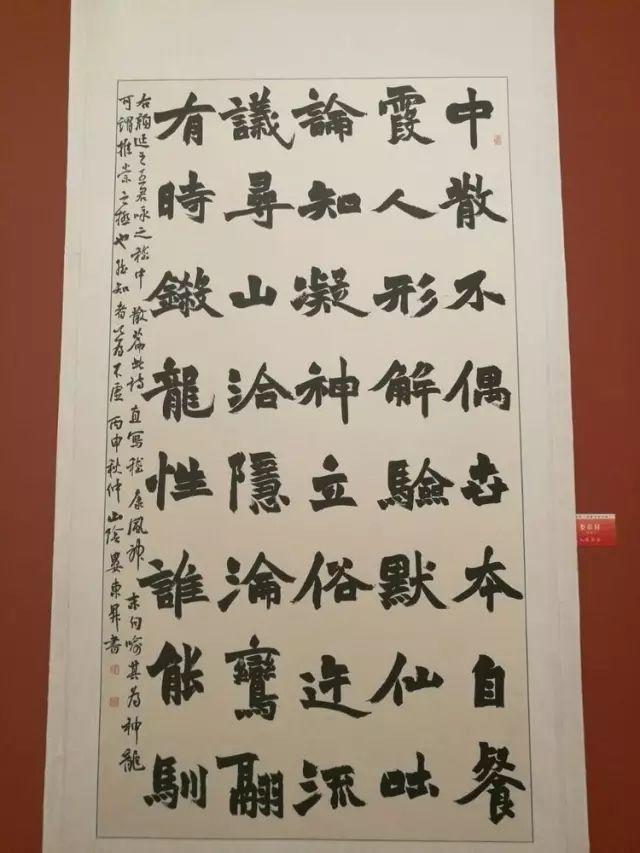 中散不偶世本自餐
霞人形解驗默仙吐
論知凝神立俗迕流
議尋山洽隱淪鸞翮
有時鎩龍性誰能馴
右顏延之五君詠之嵇中散篇此詩直寫嵇康風神末句喻其為神龍
可謂推崇之極也知者以為不虛丙申秋仲山陰婁東昇書